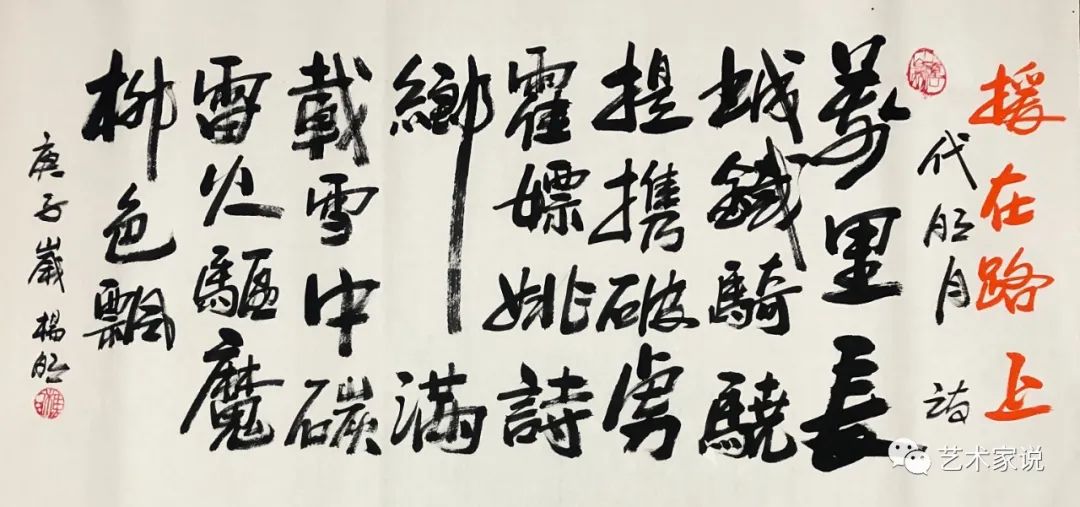 援在路上
代明月 詩
萬里長
城鐵騎驍
提携破虜
霍嫖姚詩
鄉滿
載雪中碳
雷火驅魔
柳色飄
庚子歲 楊明
艺术家说